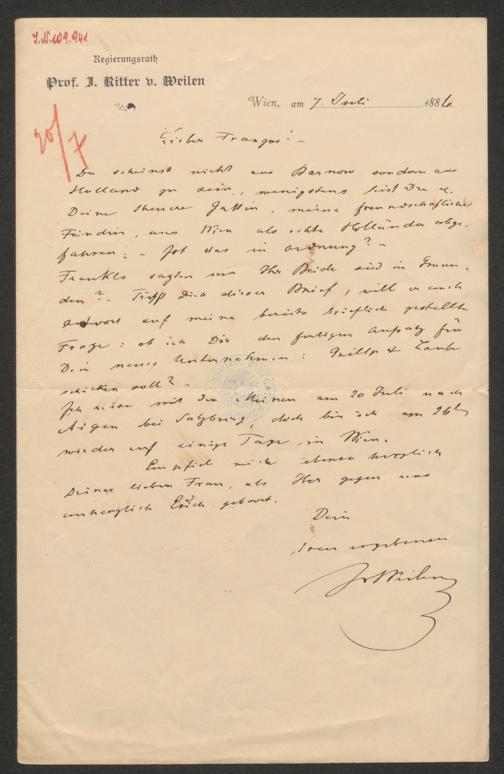 J.N. 109.941
Regierungsrath
Prof. J. Ritter v. Weilen
Wien, am 7. Juli 1886
20/7
Lieber Franzos! –
Du scheinst nicht aus Barnow sondern aus
Holland zu sein, wenigstens bist Du u.
Deine theuere Gattin, meine freundschaftliche
Feindin, aus Wien als echte Holländer abge-
fahren. – Ist das in Ordnung? –
Frankls sagten mir Ihr Beide seid in Gmun-
den? – Trifft Dich dieser Brief, will er auch
Antwort auf meine bereits brieflich gestellte
Frage: ob ich Dir den fertigen Aufsatz für
Dein neues Unternehmen: Grillp. & Laube
schicken soll? –
Ich reise mit den Meinen am 20 Juli nach
Aigen bei Salzburg, doch bin ich am 26t
wieder auf einige Tage in Wien.
Empfiehl mich ebenso herzlich
Deiner lieben Frau, als Ihr gegen uns
unherzlich Euch gebart.
Dein
treu ergebener
JvWeilen